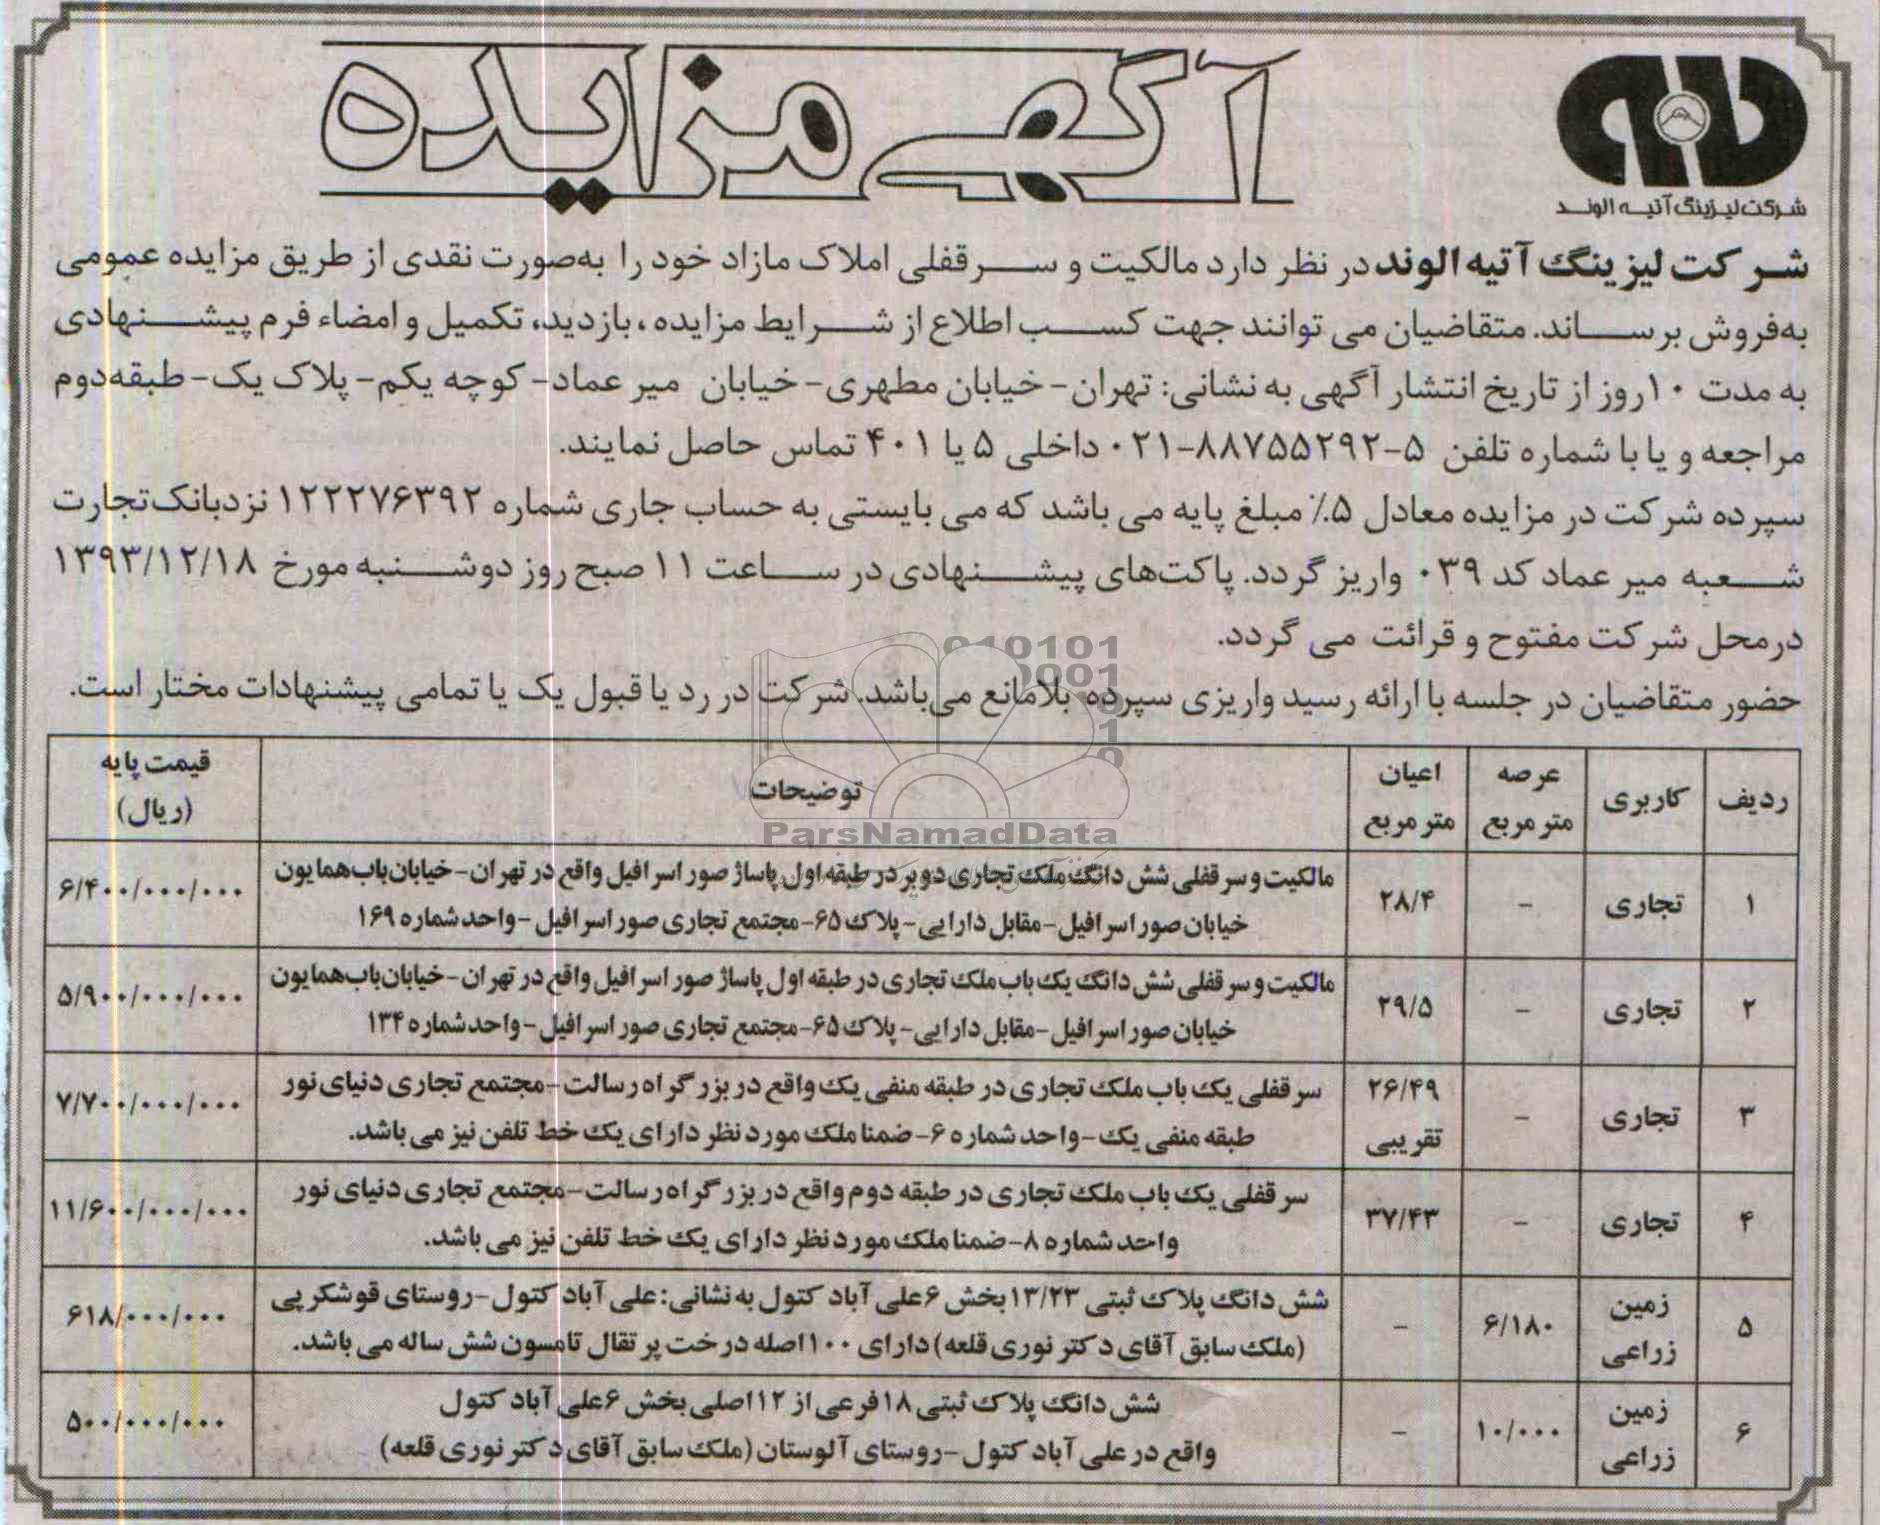 آگهی مزایده
شرکت لیزینگ آتیه الوند
شرکت لیزینگ آتیه الوند در نظر دارد مالکیت و سرقفلی املاک مازاد خود را به‌صورت نقدی از طریق مزایده عمومی
به‌فروش برساند. متقاضیان می توانند جهت کسب اطلاع از شرایط مزایده، بازدید، تکمیل و امضاء فرم پیشنهادی
به مدت ۱۰روز از تاریخ انتشار آگهی به نشانی: تهران- خیابان مطهری- خیابان میر عماد- کوچه یکم- پلاک یک- طبقه‌دوم
مراجعه و یا با شماره تلفن ۵-۸۸۷۵۵۲۹۲-۰۲۱ داخلی ۵ یا ۴۰۱ تماس حاصل نمایند.
سپرده شرکت در مزایده معادل ۵٪ مبلغ پایه می باشد که می بایستی به حساب جاری شماره ۱۲۲۲۷۶۳۹۲ نزدبانک‌تجارت
شعبه میر عماد کد ۰۳۹ واریز گردد. پاکت‌های پیشنهادی در ساعت ۱۱ صبح روز دوشنبه مورخ ۱۳۹۳/۱۲/۱۸
درمحل شرکت مفتوح و قرائت می گردد.
حضور متقاضیان در جلسه با ارائه رسید واریزی سپرده بلامانع می‌باشد. شرکت در رد یا قبول یک یا تمامی پیشنهادات مختار است.
ParsNamadData
ردیف | کاربری | عرصه متر مربع | اعیان متر مربع | توضیحات | قیمت پایه (ریال)
۱ | تجاری | - | ۲۸/۴ | مالکیت و سرقفلی شش دانگ ملک تجاری دوبر در طبقه اول پاساژ صور اسرافیل واقع در تهران- خیابان‌باب‌همایون
خیابان صور اسرافیل- مقابل دارایی- پلاک ۶۵- مجتمع تجاری صور اسرافیل- واحد شماره ۱۶۹ | ۶/۴۰۰/۰۰۰/۰۰۰
۲ | تجاری | - | ۲۹/۵ | مالکیت و سرقفلی شش دانگ یک باب ملک تجاری در طبقه اول پاساژ صور اسرافیل واقع در تهران- خیابان‌باب‌همایون
خیابان صور اسرافیل- مقابل دارایی- پلاک ۶۵- مجتمع تجاری صور اسرافیل- واحد شماره ۱۳۴ | ۵/۹۰۰/۰۰۰/۰۰۰
۳ | تجاری | - | ۲۶/۴۹ تقریبی | سرقفلی یک باب ملک تجاری در طبقه منفی یک واقع در بزرگراه رسالت- مجتمع تجاری دنیای نور
طبقه منفی یک- واحد شماره ۶- ضمنا ملک مورد نظر دارای یک خط تلفن نیز می باشد. | ۷/۷۰۰/۰۰۰/۰۰۰
۴ | تجاری | - | ۳۷/۴۳ | سرقفلی یک باب ملک تجاری در طبقه دوم واقع در بزرگراه رسالت- مجتمع تجاری دنیای نور
واحد شماره ۸- ضمنا ملک مورد نظر دارای یک خط تلفن نیز می باشد. | ۱۱/۶۰۰/۰۰۰/۰۰۰
۵ | زمین زراعی | ۶/۱۸۰ | - | شش دانگ پلاک ثبتی ۱۳/۲۳ بخش ۶علی آباد کتول به نشانی: علی آباد کتول- روستای قوشکرپی
(ملک سابق آقای دکتر نوری قلعه) دارای ۱۰۰اصله درخت پرتقال تامسون شش ساله می باشد. | ۶۱۸/۰۰۰/۰۰۰
۶ | زمین زراعی | ۱۰/۰۰۰ | - | شش دانگ پلاک ثبتی ۱۸فرعی از ۱۲اصلی بخش ۶علی آباد کتول
واقع در علی آباد کتول- روستای آلوستان (ملک سابق آقای دکتر نوری قلعه) | ۵۰۰/۰۰۰/۰۰۰